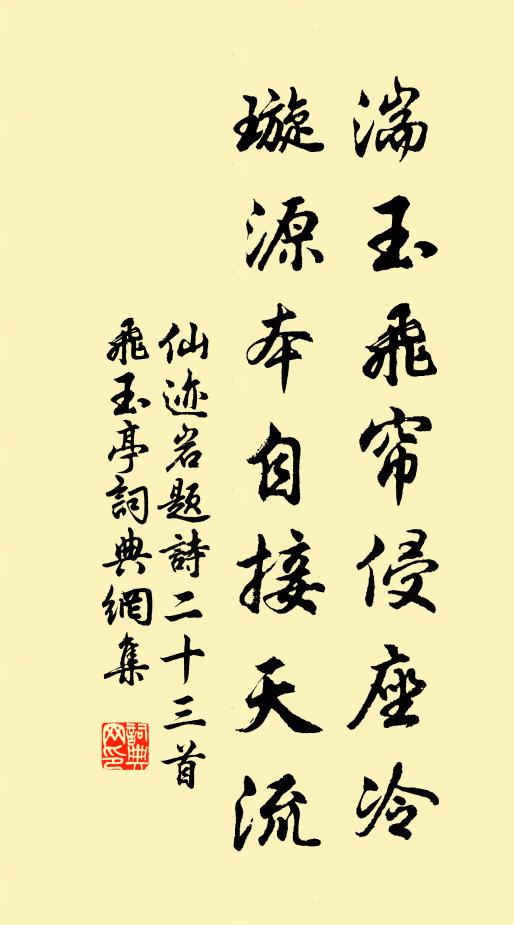 湍玉飛帘侵座冷
璇源本自接天流
仙迹岩题詩二十三首
飛玉亭詞典網集
詞典
网印